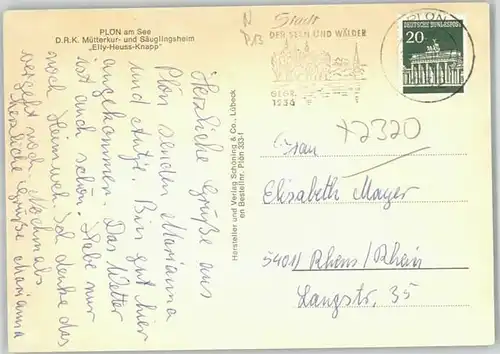 PLÖN am See
D.R.K. Mütterkur- und Säuglingsheim
„Elly-Heuss-Knapp"
Herzliche Grüße aus
Plön senden Marianna
und Antje. Bin gut hier
angekommen. Das Wetter
ist auch schön. Habe nur
noch Heimweh. Ich denke das
vergeht noch. Nochmals
herzliche Grüße Marianna
Hersteller und Verlag Schöning & Co., Lübeck
en Bestellnr. Plön 333-f
Stadt
DER SEEN UND WÄLDER
GEGR.
1236
PLÖN
DEUTSCHE BUNDESPOST
20
+2320
Frau
Elisabeth Mayer
5401 Rhens/Rhein
Langstr. 35